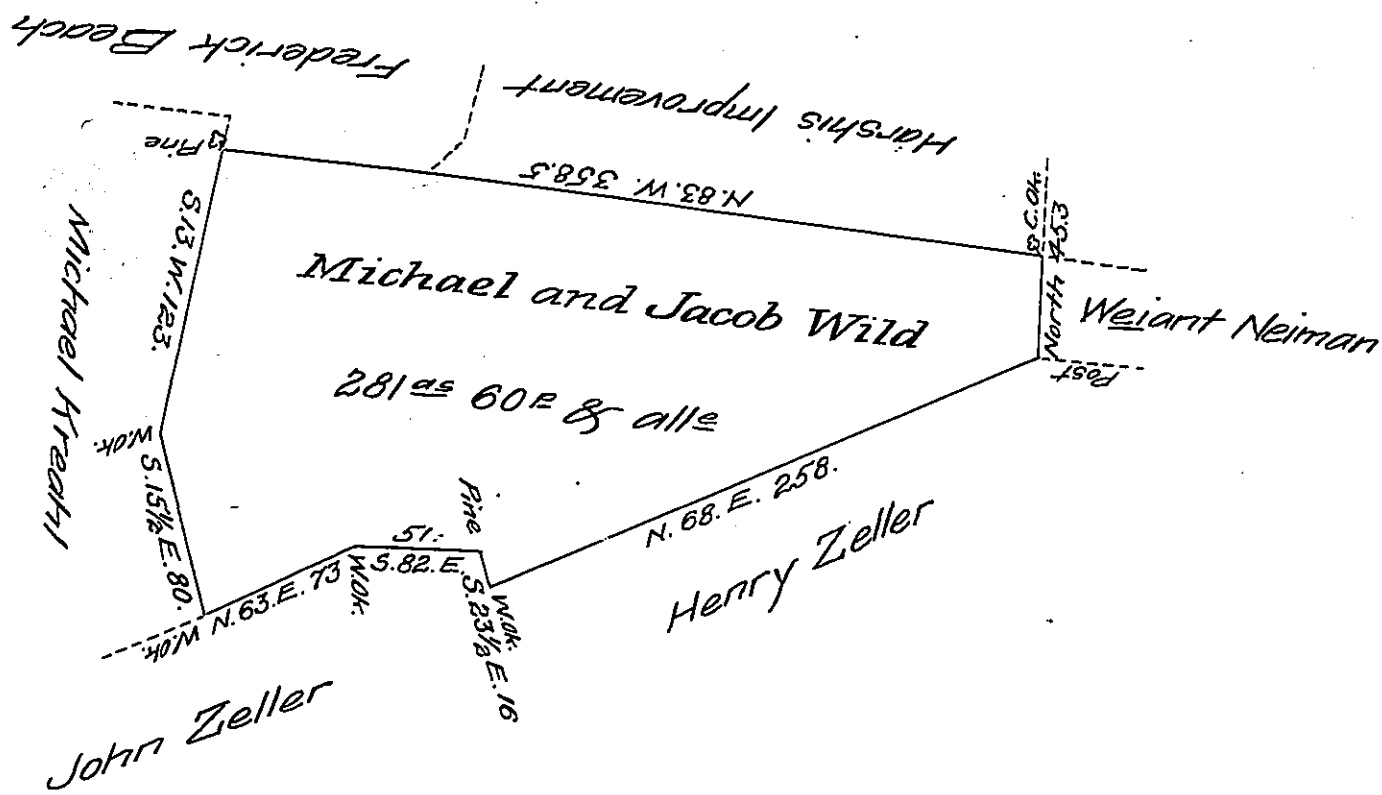 Frederick Beach
Harshis Improvement
Pine
N. 83. W. 358.5
C. Ok.
North 45.3
Weiant Neiman
Post
S. 13. W. 123.
Michael Kreahl
Michael and Jacob Wild
281 as 60 p & alle
W. Ok.
S. 15½ E. 80.
W. Ok.
N. 63. E. 73
W. Ok.
51.
S. 82. E.
Pine
S. 23½ E. 16
W. Ok.
N. 68. E. 258.
Henry Zeller
John Zeller